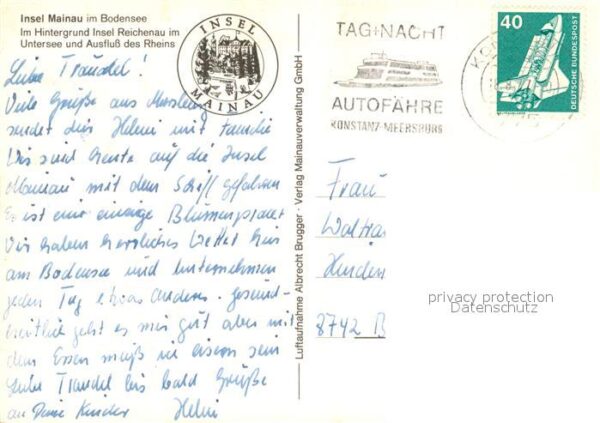 Insel Mainau im Bodensee
Im Hintergrund Insel Reichenau im
Untersee und Ausfluß des Rheins
INSEL
MAINAU
TAG+NACHT
AUTOFÄHRE
KONSTANZ-MEERSBURG
40
DEUTSCHE BUNDESPOST
Liebe Traudel!
Viele Grüße aus Meersburg
sendet dir Helmi mit Familie
Wir sind heute auf die Insel
Mainau mit dem Schiff gefahren
Es ist eine einzige Blumenpracht
Wir haben herrliches Wetter hier
am Bodensee und unternehmen
jeden Tag etwas anderes. Gesund-
heitlich geht es mir gut aber mit
dem Essen muß ich eisern sein
Liebe Traudel bis bald Grüße
an Deine Kinder Helmi
Luftaufnahme Albrecht Brugger · Verlag Mainauverwaltung GmbH
Frau
Waltra
8742 B
privacy protection
Datenschutz